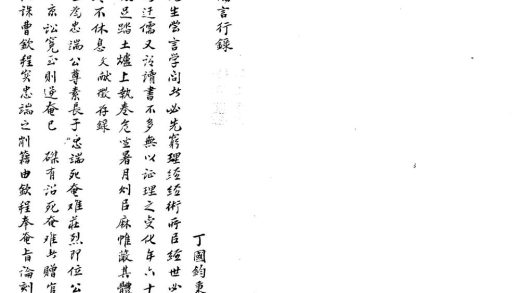 言行錄
丁國鈞東
生嘗言学问者必先窮理經經術所以經世必
迂儒又谓讀書不多無以証理之变化年六十
足踏土爐上執卷危坐暑月則以麻帷蔽其體
不休息文献徵存錄
為忠端公尊素長子忠端死奄难莊烈即位公
京訟冤至則逆奄已 磔有詔死奄难者贈官
誅曹欽程實忠端之削籍由欽程奉奄旨論劾